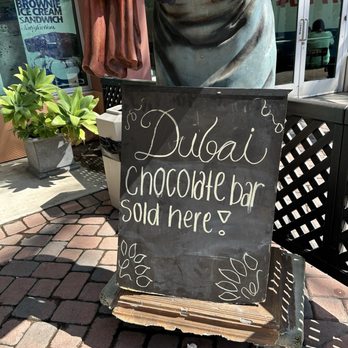 BROWNIE
ICE CREAM
SANDWICH
Dubai
chocolate bar
sold here!